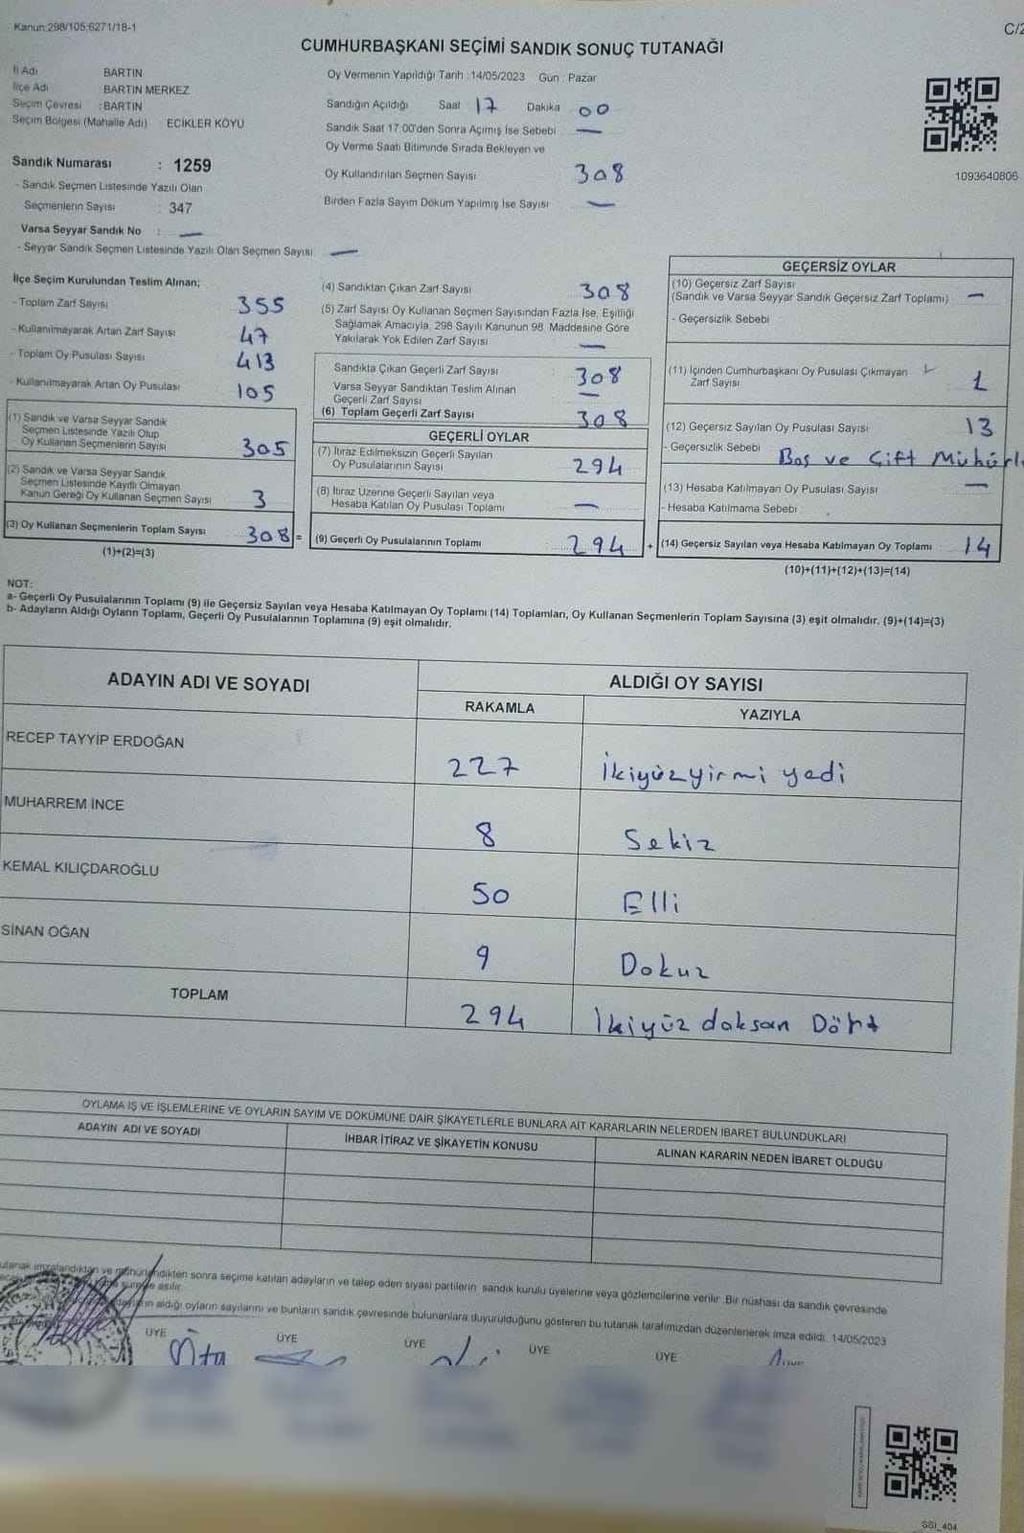 Kanun:298/105;6271/18-1
C/2
CUMHURBAŞKANI SEÇİMİ SANDIK SONUÇ TUTANAĞI
İl Adı BARTIN
İlçe Adı BARTIN MERKEZ
Seçim Çevresi : BARTIN
Seçim Bölgesi (Mahalle Adı) ECİKLER KÖYÜ
Sandık Numarası : 1259
- Sandık Seçmen Listesinde Yazılı Olan
Seçmenlerin Sayısı : 347
Varsa Seyyar Sandık No : —
- Seyyar Sandık Seçmen Listesinde Yazılı Olan Seçmen Sayısı —
Oy Vermenin Yapıldığı Tarih :14/05/2023 Gün : Pazar
Sandığın Açıldığı Saat 17 Dakika 00
Sandık Saat 17:00'den Sonra Açılmış İse Sebebi —
Oy Verme Saati Bitiminde Sırada Bekleyen ve
Oy Kullandırılan Seçmen Sayısı 308
Birden Fazla Sayım Döküm Yapılmış İse Sayısı —
1093640806
İlçe Seçim Kurulundan Teslim Alınan;
- Toplam Zarf Sayısı 355
- Kullanılmayarak Artan Zarf Sayısı 47
- Toplam Oy Pusulası Sayısı 413
- Kullanılmayarak Artan Oy Pusulası 105
(1) Sandık ve Varsa Seyyar Sandık
Seçmen Listesinde Yazılı Olup
Oy Kullanan Seçmenlerin Sayısı 305
(2) Sandık ve Varsa Seyyar Sandık
Seçmen Listesinde Kayıtlı Olmayan
Kanun Gereği Oy Kullanan Seçmen Sayısı 3
(3) Oy Kullanan Seçmenlerin Toplam Sayısı 308 =
(1)+(2)=(3)
(4) Sandıktan Çıkan Zarf Sayısı 308
(5) Zarf Sayısı Oy Kullanan Seçmen Sayısından Fazla İse, Eşitliği
Sağlamak Amacıyla, 298 Sayılı Kanunun 98. Maddesine Göre
Yakılarak Yok Edilen Zarf Sayısı —
Sandıkta Çıkan Geçerli Zarf Sayısı : 308
Varsa Seyyar Sandıktan Teslim Alınan
Geçerli Zarf Sayısı —
(6) Toplam Geçerli Zarf Sayısı 308
GEÇERLİ OYLAR
(7) İtiraz Edilmeksizin Geçerli Sayılan
Oy Pusulalarının Sayısı 294
(8) İtiraz Üzerine Geçerli Sayılan veya
Hesaba Katılan Oy Pusulası Toplamı —
(9) Geçerli Oy Pusulalarının Toplamı 294 +
GEÇERSİZ OYLAR
(10) Geçersiz Zarf Sayısı
(Sandık ve Varsa Seyyar Sandık Geçersiz Zarf Toplamı) —
- Geçersizlik Sebebi
(11) İçinden Cumhurbaşkanı Oy Pusulası Çıkmayan
Zarf Sayısı 1
(12) Geçersiz Sayılan Oy Pusulası Sayısı 13
- Geçersizlik Sebebi Boş ve Çift Mühürlü
(13) Hesaba Katılmayan Oy Pusulası Sayısı —
- Hesaba Katılmama Sebebi
(14) Geçersiz Sayılan veya Hesaba Katılmayan Oy Toplamı 14
(10)+(11)+(12)+(13)=(14)
NOT:
a- Geçerli Oy Pusulalarının Toplamı (9) ile Geçersiz Sayılan veya Hesaba Katılmayan Oy Toplamı (14) Toplamları, Oy Kullanan Seçmenlerin Toplam Sayısına (3) eşit olmalıdır. (9)+(14)=(3)
b- Adayların Aldığı Oyların Toplamı, Geçerli Oy Pusulalarının Toplamına (9) eşit olmalıdır.
ADAYIN ADI VE SOYADI ALDIĞI OY SAYISI
RAKAMLA YAZIYLA
RECEP TAYYİP ERDOĞAN 227 İkiyüzyirmi yedi
MUHARREM İNCE 8 Sekiz
KEMAL KILIÇDAROĞLU 50 Elli
SİNAN OĞAN 9 Dokuz
TOPLAM 294 İkiyüz doksan Dört
OYLAMA İŞ VE İŞLEMLERİNE VE OYLARIN SAYIM VE DÖKÜMÜNE DAİR ŞİKAYETLERLE BUNLARA AİT KARARLARIN NELERDEN İBARET BULUNDUKLARI
ADAYIN ADI VE SOYADI İHBAR İTİRAZ VE ŞİKAYETİN KONUSU ALINAN KARARIN NEDEN İBARET OLDUĞU
imzalandıktan ve mühürlendikten sonra seçime katılan adayların ve talep eden siyasi partilerin sandık kurulu üyelerine veya gözlemcilerine verilir. Bir nüshası da sandık çevresinde
asılır.
aldığı oyların sayılarını ve bunların sandık çevresinde bulunanlara duyurulduğunu gösteren bu tutanak tarafımızdan düzenlenerek imza edildi. 14/05/2023
ÜYE ÜYE ÜYE ÜYE ÜYE
SSI_404